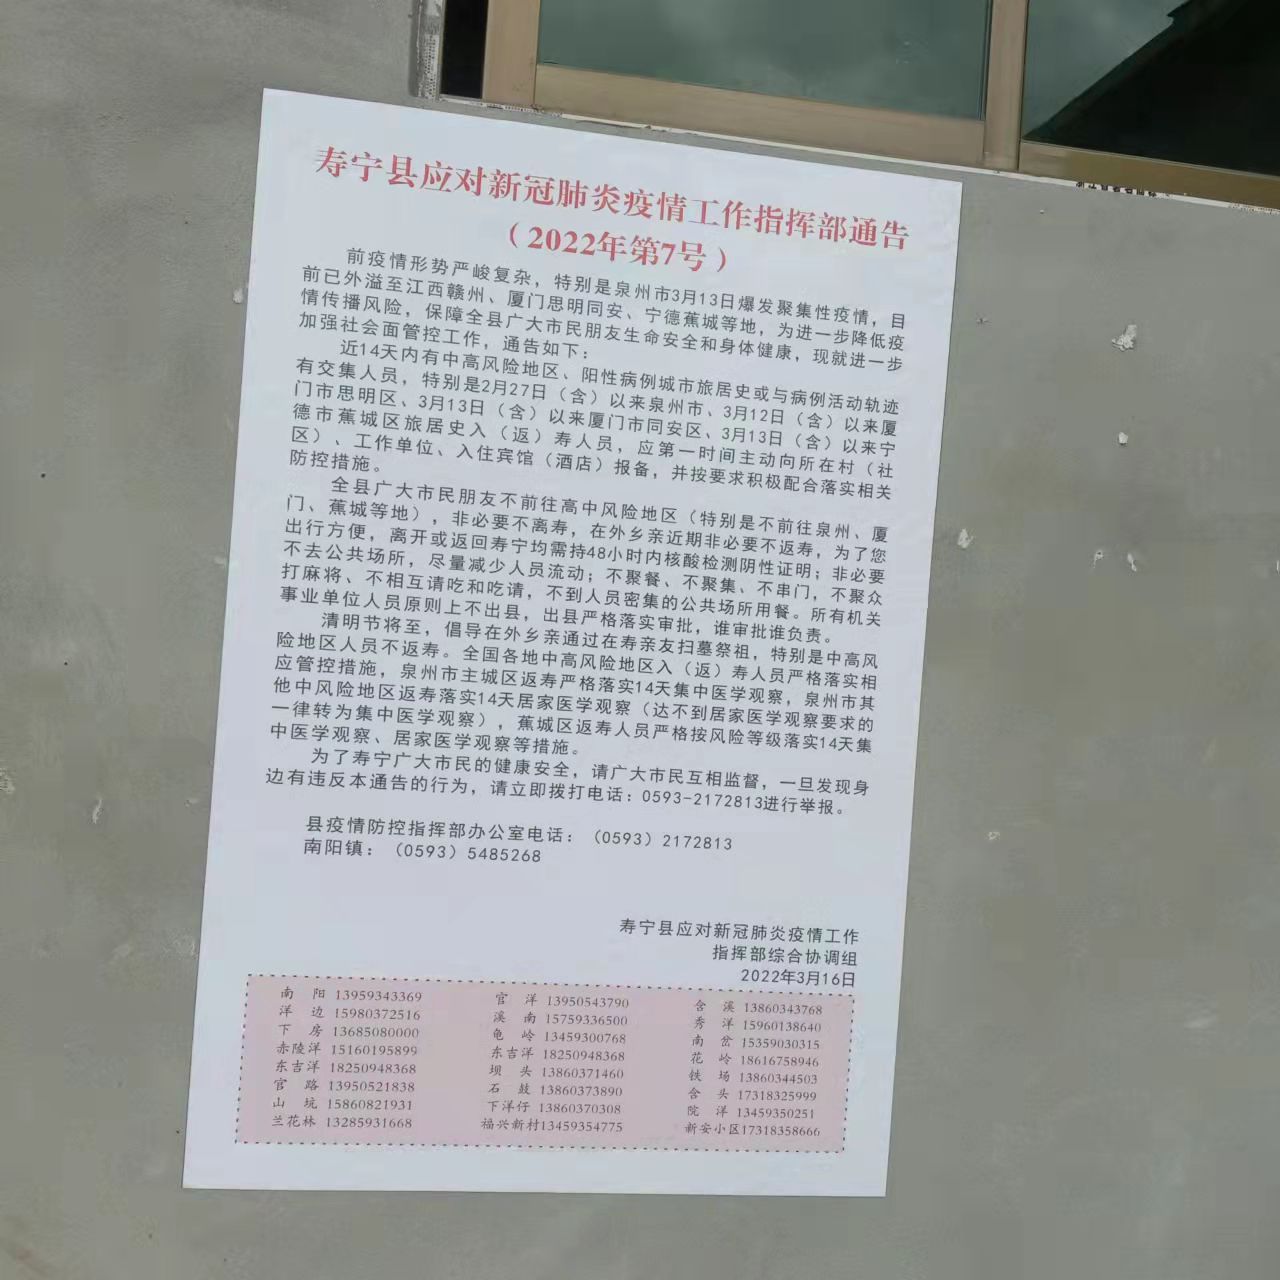 寿宁县应对新冠肺炎疫情工作指挥部通告
（2022年第7号）
前疫情形势严峻复杂，特别是泉州市3月13日爆发聚集性疫情，目
前已外溢至江西赣州、厦门思明同安、宁德蕉城等地，为进一步降低疫
情传播风险，保障全县广大市民朋友生命安全和身体健康，现就进一步
加强社会面管控工作，通告如下：
近14天内有中高风险地区、阳性病例城市旅居史或与病例活动轨迹
有交集人员，特别是2月27日（含）以来泉州市、3月12日（含）以来厦
门市思明区、3月13日（含）以来厦门市同安区、3月13日（含）以来宁
德市蕉城区旅居史入（返）寿人员，应第一时间主动向所在村（社
区）、工作单位、入住宾馆（酒店）报备，并按要求积极配合落实相关
防控措施。
全县广大市民朋友不前往高中风险地区（特别是不前往泉州、厦
门、蕉城等地），非必要不离寿，在外乡亲近期非必要不返寿，为了您
出行方便，离开或返回寿宁均需持48小时内核酸检测阴性证明；非必要
不去公共场所，尽量减少人员流动；不聚餐、不聚集、不串门，不聚众
打麻将、不相互请吃和吃请，不到人员密集的公共场所用餐。所有机关
事业单位人员原则上不出县，出县严格落实审批，谁审批谁负责。
清明节将至，倡导在外乡亲通过在寿亲友扫墓祭祖，特别是中高风
险地区人员不返寿。全国各地中高风险地区入（返）寿人员严格落实相
应管控措施，泉州市主城区返寿严格落实14天集中医学观察，泉州市其
他中风险地区返寿落实14天居家医学观察（达不到居家医学观察要求的
一律转为集中医学观察），蕉城区返寿人员严格按风险等级落实14天集
中医学观察、居家医学观察等措施。
为了寿宁广大市民的健康安全，请广大市民互相监督，一旦发现身
边有违反本通告的行为，请立即拨打电话：0593-2172813进行举报。
县疫情防控指挥部办公室电话：（0593）2172813
南阳镇：（0593）5485268
寿宁县应对新冠肺炎疫情工作
指挥部综合协调组
2022年3月16日
南 阳 13959343369 官 洋 13950543790 含 溪 13860343768
洋 边 15980372516 溪 南 15759336500 秀 洋 15960138640
下 房 13685080000 龟 岭 13459300768 南 岔 15359030315
赤陵洋 15160195899 东吉洋 18250948368 花 岭 18616758946
东吉洋 18250948368 坝 头 13860371460 铁 场 13860344503
官 路 13950521838 石 鼓 13860373890 含 头 17318325999
山 坑 15860821931 下洋仔 13860370308 院 洋 13459350251
兰花林 13285931668 福兴新村13459354775 新安小区17318358666